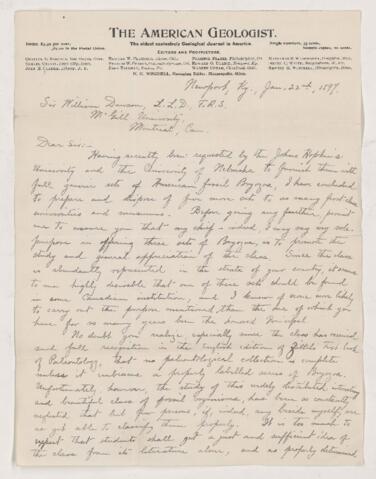 THE AMERICAN GEOLOGIST.
The oldest exclusively Geological Journal in America.
EDITORS AND PROPRIETORS.
N. H. WINCHELL, Managing Editor, Minneapolis, Minn.
Newport, Ky., Jan. 22nd, 1897.
Sir William Dawson, L.L.D. F.R.S.
McGill University,
Montreal, Can.
Dear Sir:-
Having recently been requested by the Johns Hopkins
University and the University of Nebraska to furnish them with
full generic sets of American fossil Bryozoa, I have concluded
to prepare and dispose of five more sets to as many first class
universities and museums. Before going any further, permit
me to assure you that my chief - indeed, I may say my sole
purpose in offering these sets of Bryozoa, is to promote the
study and general appreciation of the class. Since the class
is abundantly represented in the strata of your country, it seems
to me highly desirable that one of these sets should be found
in some Canadian institution, and I know of none more likely
to carry out the purpose mentioned than the one of which you
have for so many years been the honored Principal.
No doubt you realize, especially since the class has received
such full recognition in the english edition of Zittel's Text Book
of Paleontology, that no paleontological collection is complete
unless it embraces a properly labelled series of Bryozoa.
Unfortunately, however, the study of this widely distributed, interesting
and beautiful class of fossil organisms, has been so constantly
neglected that but few persons, if, indeed, any beside myself, are
as yet able to classify them properly. It is too much to
expect that students shall get a just and sufficient idea of
the class from its literature alone, and as properly determined